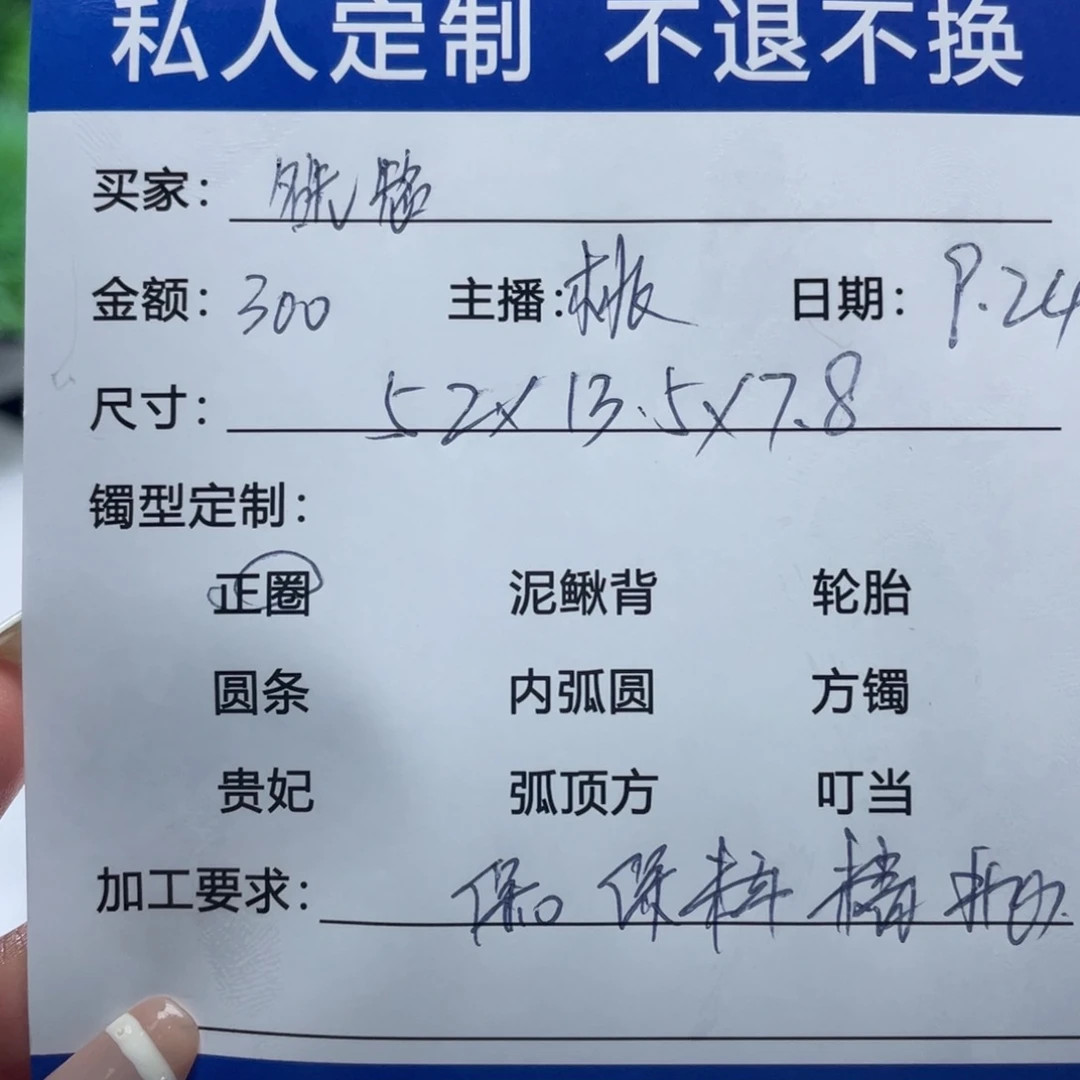 私人定制 不退不换
买家：
金额：300 主播： 日期：9.24
尺寸：52x13.5x7.8
镯型定制：
正圈 泥鳅背 轮胎
圆条 内弧圆 方镯
贵妃 弧顶方 叮当
加工要求：